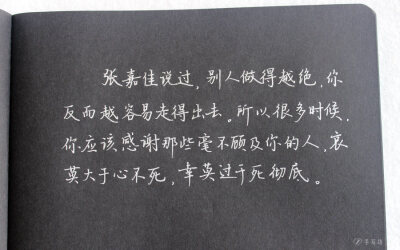 张嘉佳说过，别人做得越绝，你
反而越容易走得出去。所以很多时候，
你应该感谢那些毫不顾及你的人，哀
莫大于心不死，幸莫过于死彻底。
手写坊